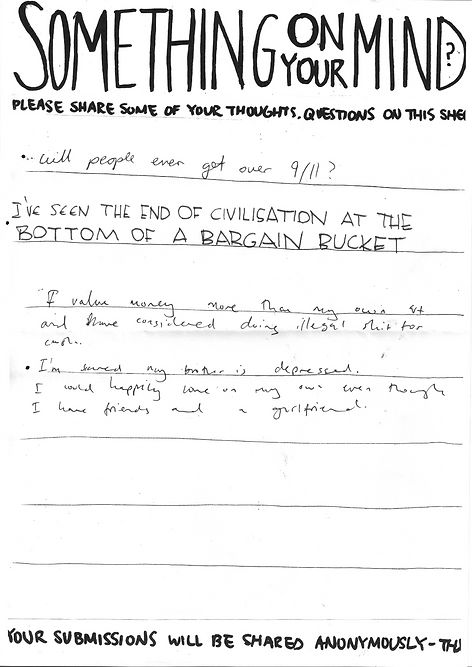 SOMETHING ON YOUR MIND?
PLEASE SHARE SOME OF YOUR THOUGHTS. QUESTIONS ON THIS SHE
• will people ever get over 9/11?
• I'VE SEEN THE END OF CIVILISATION AT THE
BOTTOM OF A BARGAIN BUCKET
I value money more than my own
and have considered doing illegal shit for
cash.
• I'm scared my brother is depressed.
I could happily on my own even though
I have friends and a girlfriend.
YOUR SUBMISSIONS WILL BE SHARED ANONYMOUSLY - TH